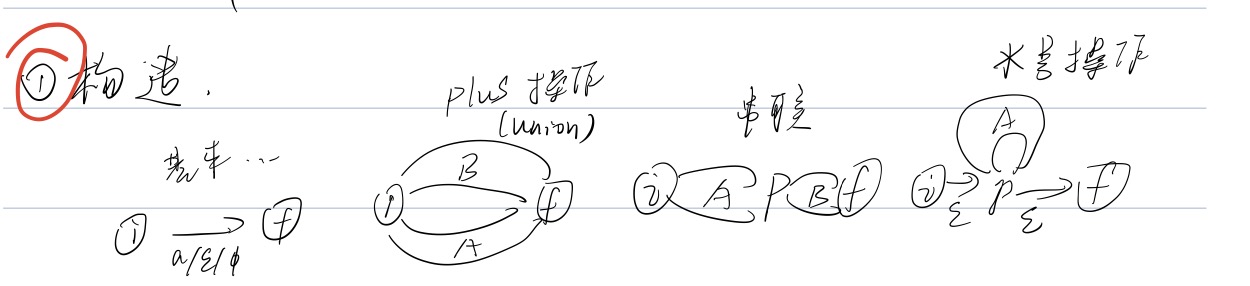 ① 构造.
基本…
i f
a/ε/ϕ
plus 操作
(union)
i B f
A
串联
i A P B f
米号操作
A
i ε p ε f